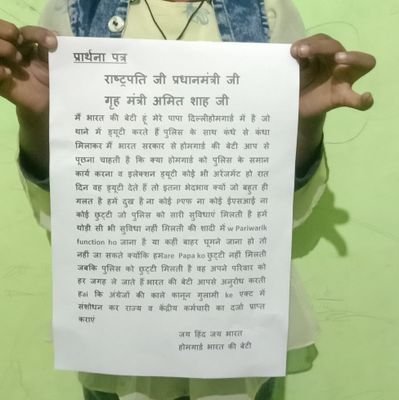 प्रार्थना पत्र
राष्ट्रपति जी प्रधानमंत्री जी
गृह मंत्री अमित शाह जी
मैं भारत की बेटी हूं मेरे पापा दिल्लीहोमगार्ड में है जो
थाने में ड्यूटी करते हैं पुलिस के साथ कंधे से कंधा
मिलाकर मैं भारत सरकार से होमगार्ड की बेटी आप से
पूछना चाहती है कि क्या होमगार्ड को पुलिस के समान
कार्य करना व इलेक्शन ड्यूटी कोई भी अरेंजमेंट हो रात
दिन वह ड्यूटी देते हैं तो इतना भेदभाव क्यों जो बहुत ही
गलत है हमें दुख है ना कोई PFF ना कोई ईएसआई ना
कोई छुट्टी जो पुलिस को सारी सुविधाएं मिलती है हमें
थोड़ी सी भी सुविधा नहीं मिलती की शादी में w Pariwarik
function ho जाना है या कहीं बाहर घूमने जाना हो तो
नहीं जा सकते क्योंकि हमare Papa ko छुट्टी नहीं मिलती
जबकि पुलिस को छुट्टी मिलती है वह अपने परिवार को
हर जगह ले जाते हैं भारत की बेटी आपसे अनुरोध करती
हai कि अंग्रेजों की काले कानून गुलामी ke एक्ट में
संशोधन कर राज्य व केंद्रीय कर्मचारी का दर्जा प्राप्त
कराएं
जय हिंद जय भारत
होमगार्ड भारत की बेटी